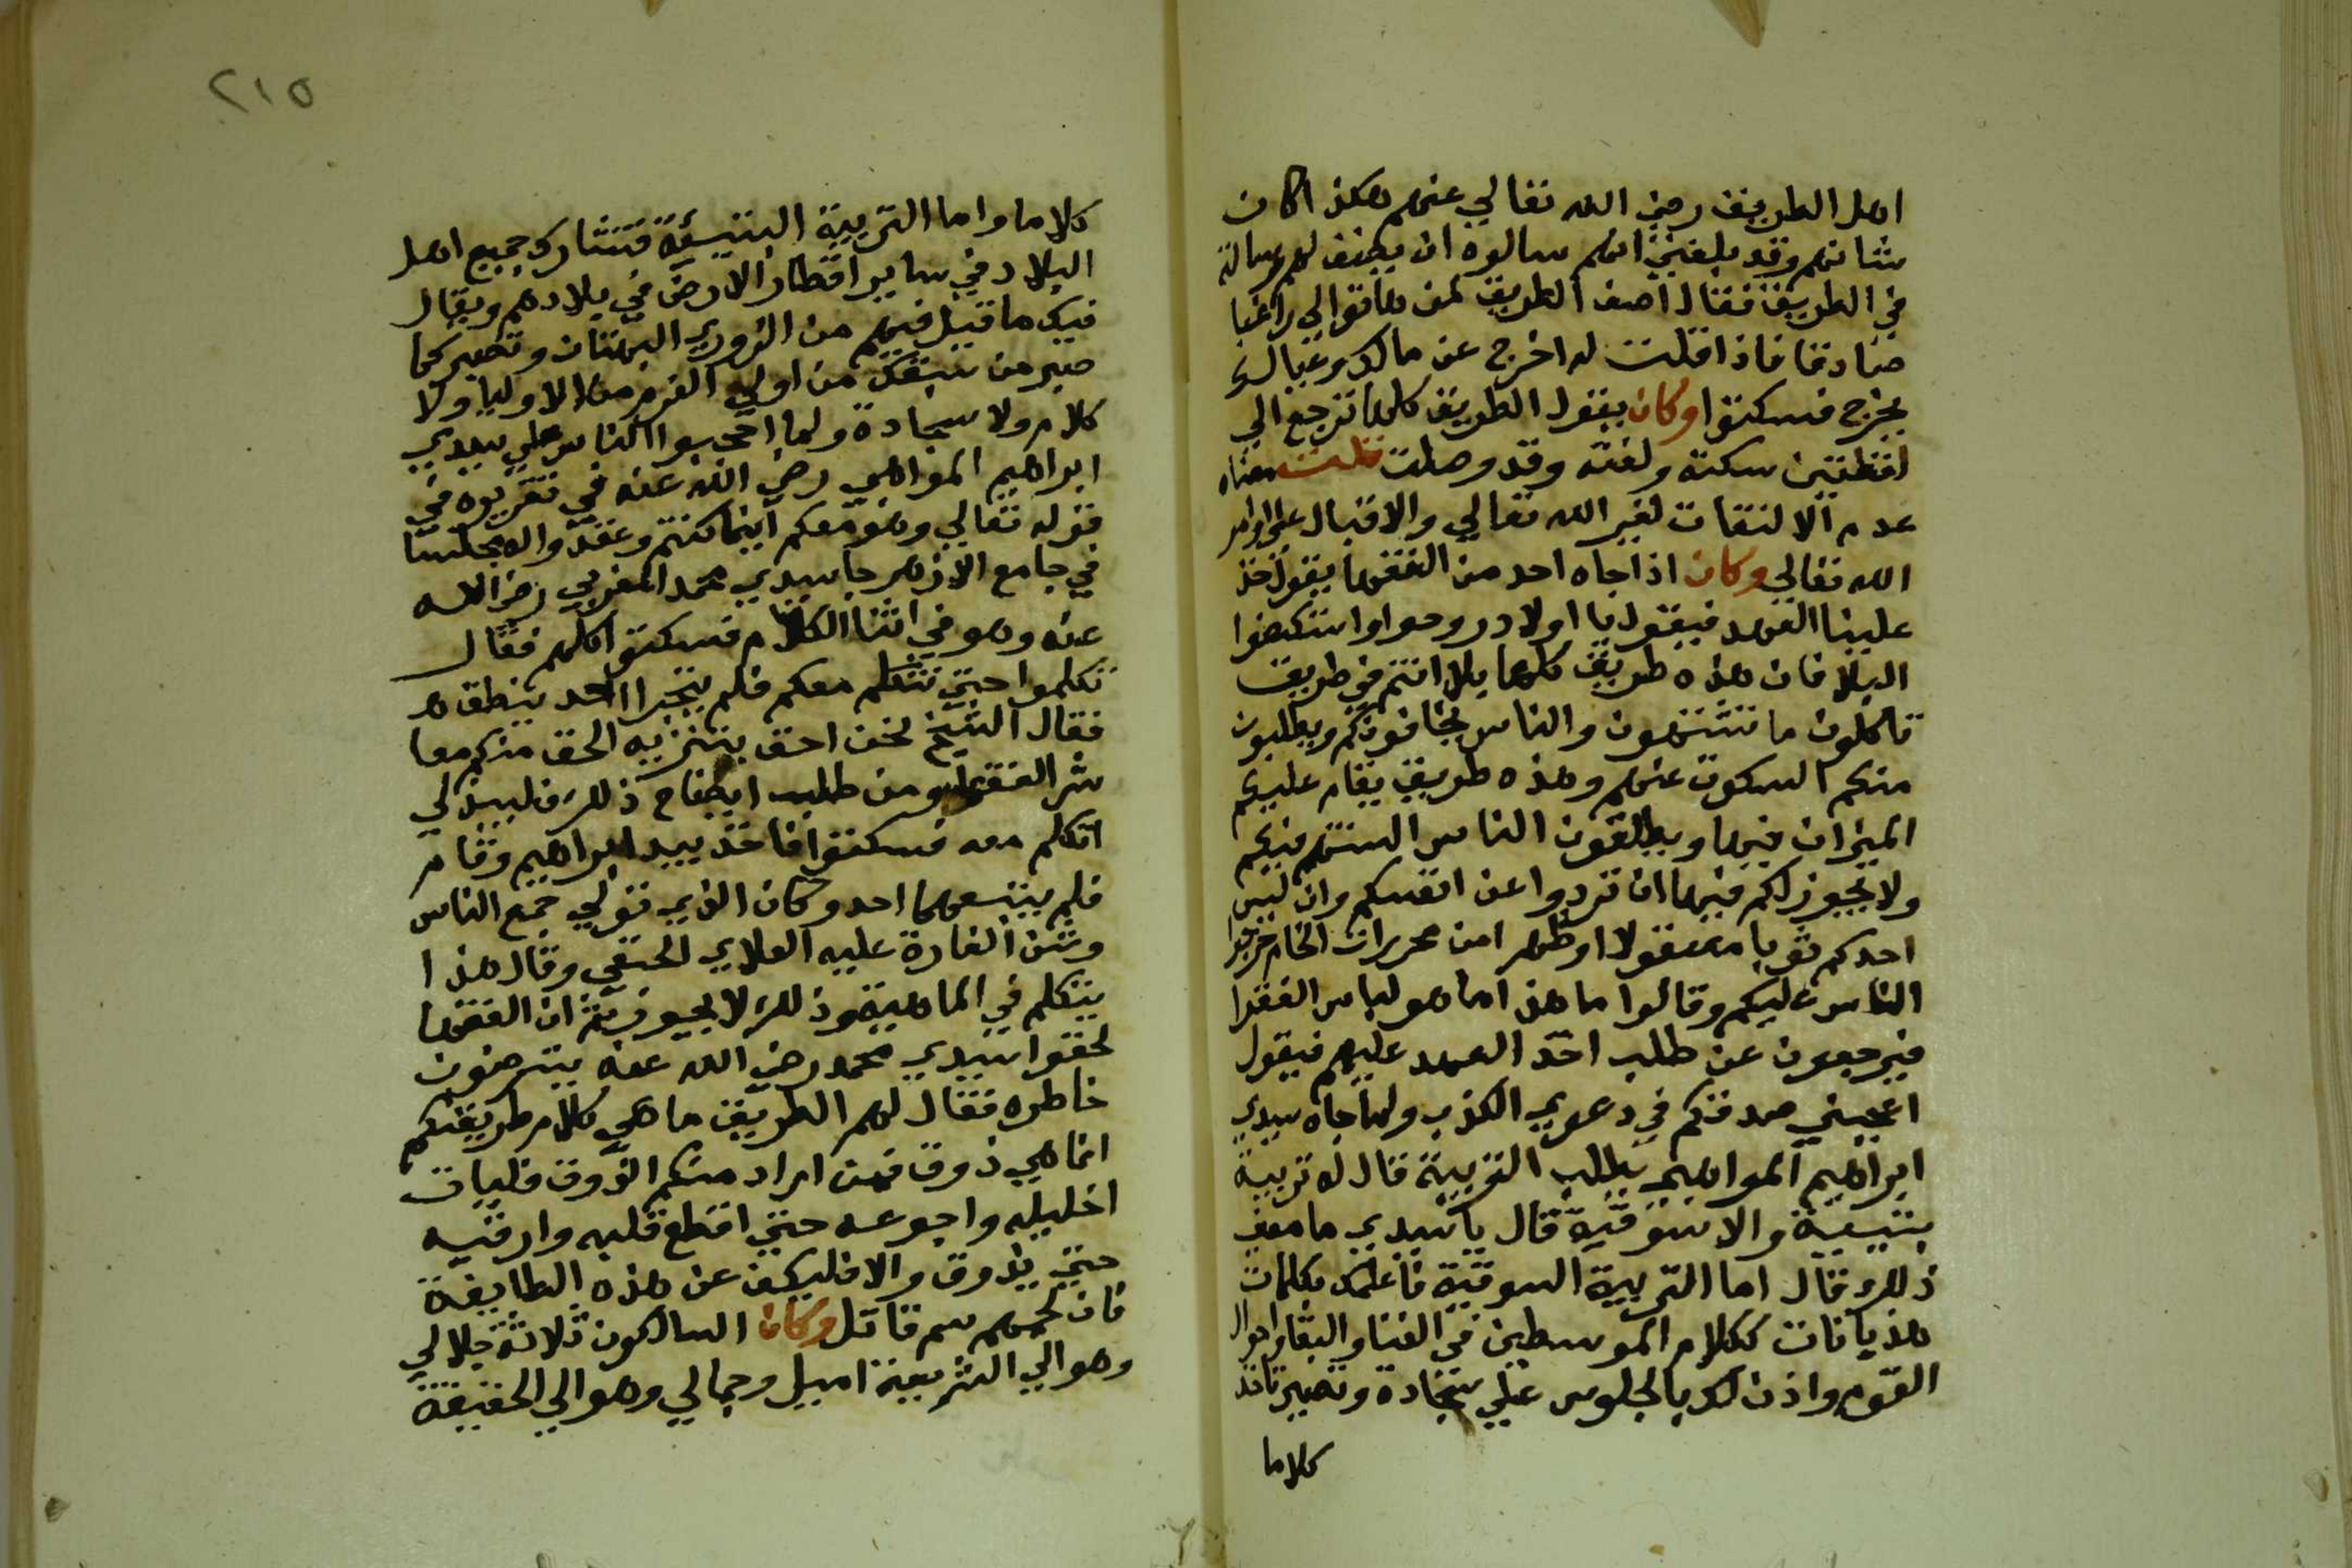 اهل الطريق رضي الله تعالي عنهم هكذا كان
شانهم وقد بلغني انهم سالوه ان يصنف لهم رسالة
في الطريق فقال اصنف الطريق لمن هاتوا لي راغبا
صادقا فاذا قلت له اخرج عن مالك وعيالك
يخرج فسكتوا وكان يقول الطريق كلها ترجع الي
لفظتين سكتة ولفتة وقد وصلت قلت معناه
عدم الالتفات لغير الله تعالي والاقبال علي اوامر
الله تعالي وكان اذا جاه احد من الفقها يقول خذ
علينا العهد فيقول يا اولاد روحوا واستكفوا
البلا فان هذه طريق كلها بلا انتم في طريق
تاكلون ما تشتهون والناس يخافونكم ويطلبون
منكم السكوت عنهم وهذه طريق يقام عليكم
الميزان فيها ويطلقون الناس السنتهم فيكم
ولا يجوز لكم فيها ان تردوا عن انفسكم وان لبس
احدكم ثوبا مصقولا او ظهرا من محررات الخام حرجوا
الناس عليكم وقالوا ما هذا ما هو لباس الفقرا
فيرجعون عن طلب اخذ العهد عليهم فيقول
اعجبني صدقكم في دعوي الكذب ولما جاه سيدي
ابراهيم المواهبي يطلب التربية قال له تربية
بيتية والا سوقية قال يا سيدي ما معني
ذلك قال اما التربية السوقية فاعلمك كلمات
هذيانات ككلام الموسطين في الفنا والبقا واحوال
القوم واذن لك بالجلوس علي سجادة وتصير تاخذ
كلاما
٢١٥
كلاما واما التربية البيتية فتشارك جميع اهل
البلاد في ساير اقطار الارض في بلادهم ويقال
فيك ما قيل فيهم من الزور والبهتان وتصبر كما
صبر من سبقك من اولي العزم من الاوليا ولا
كلام ولا سجادة ولما اعصبوا الناس علي سيدي
ابراهيم المواهبي رضي الله عنه في تقريره في
قوله تعالي وهو معكم اينما كنتم وعقدوا له مجلسا
في جامع الازهر جا سيدي محمد المغربي رضي الله
عنه وهو في اثنا الكلام فسكتوا كلهم فقال
تكلموا حتي نتكلم معكم فلم يتجرا احد ينطق هـ
فقال الشيخ نحن احق بتنزيه الحق منكم معا
شر الفقها ومن طلب ايضاح ذلك فليبرز لي
اتكلم معه فسكتوا فاخذ بيد ابراهيم وقام
فلم يتبعهما احد وكان الذي تولي جمع الناس
وشن الغارة عليه العلاي الحنفي وقال هذا
يتكلم في الماهية وذلك لا يجوز ثم ان الفقها
لحقوا سيدي محمد رضي الله عنه يترضون
خاطره فقال لهم الطريق ما هي كلام طريقتكم
انما هي ذوق فمن اراد منكم الذوق فليات
اخليه واجوعه حتي اقطع قلبه وارقيه
حتي يذوق والا فليكف عن هذه الطايفة
فان لحمهم سم قاتل وكان السالكون ثلاثة جلالي
وهو الي الشريعة اميل وجمالي وهو الي الحقيقة